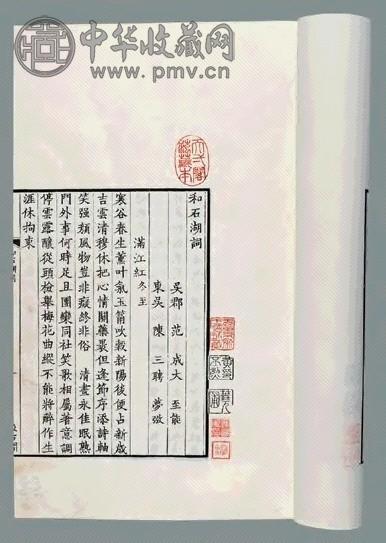 中华收藏网
www.pmv.cn
和石湖詞
吳郡 范 成大 至能
東吳 陳 三聘 夢弢
滿江紅 冬至
寒谷春生薰叶氣玉筩吹穀新陽後便占新歲
吉雲清穆休把心情關藥裹但逢節序添詩軸
笑强顏風物豈非癡終非俗 清晝永佳眠熟
門外事何時足且團欒同社笑歌相屬著意調
停雲露釀從頭檢舉梅花曲縱不能將醉作生
涯休拘束